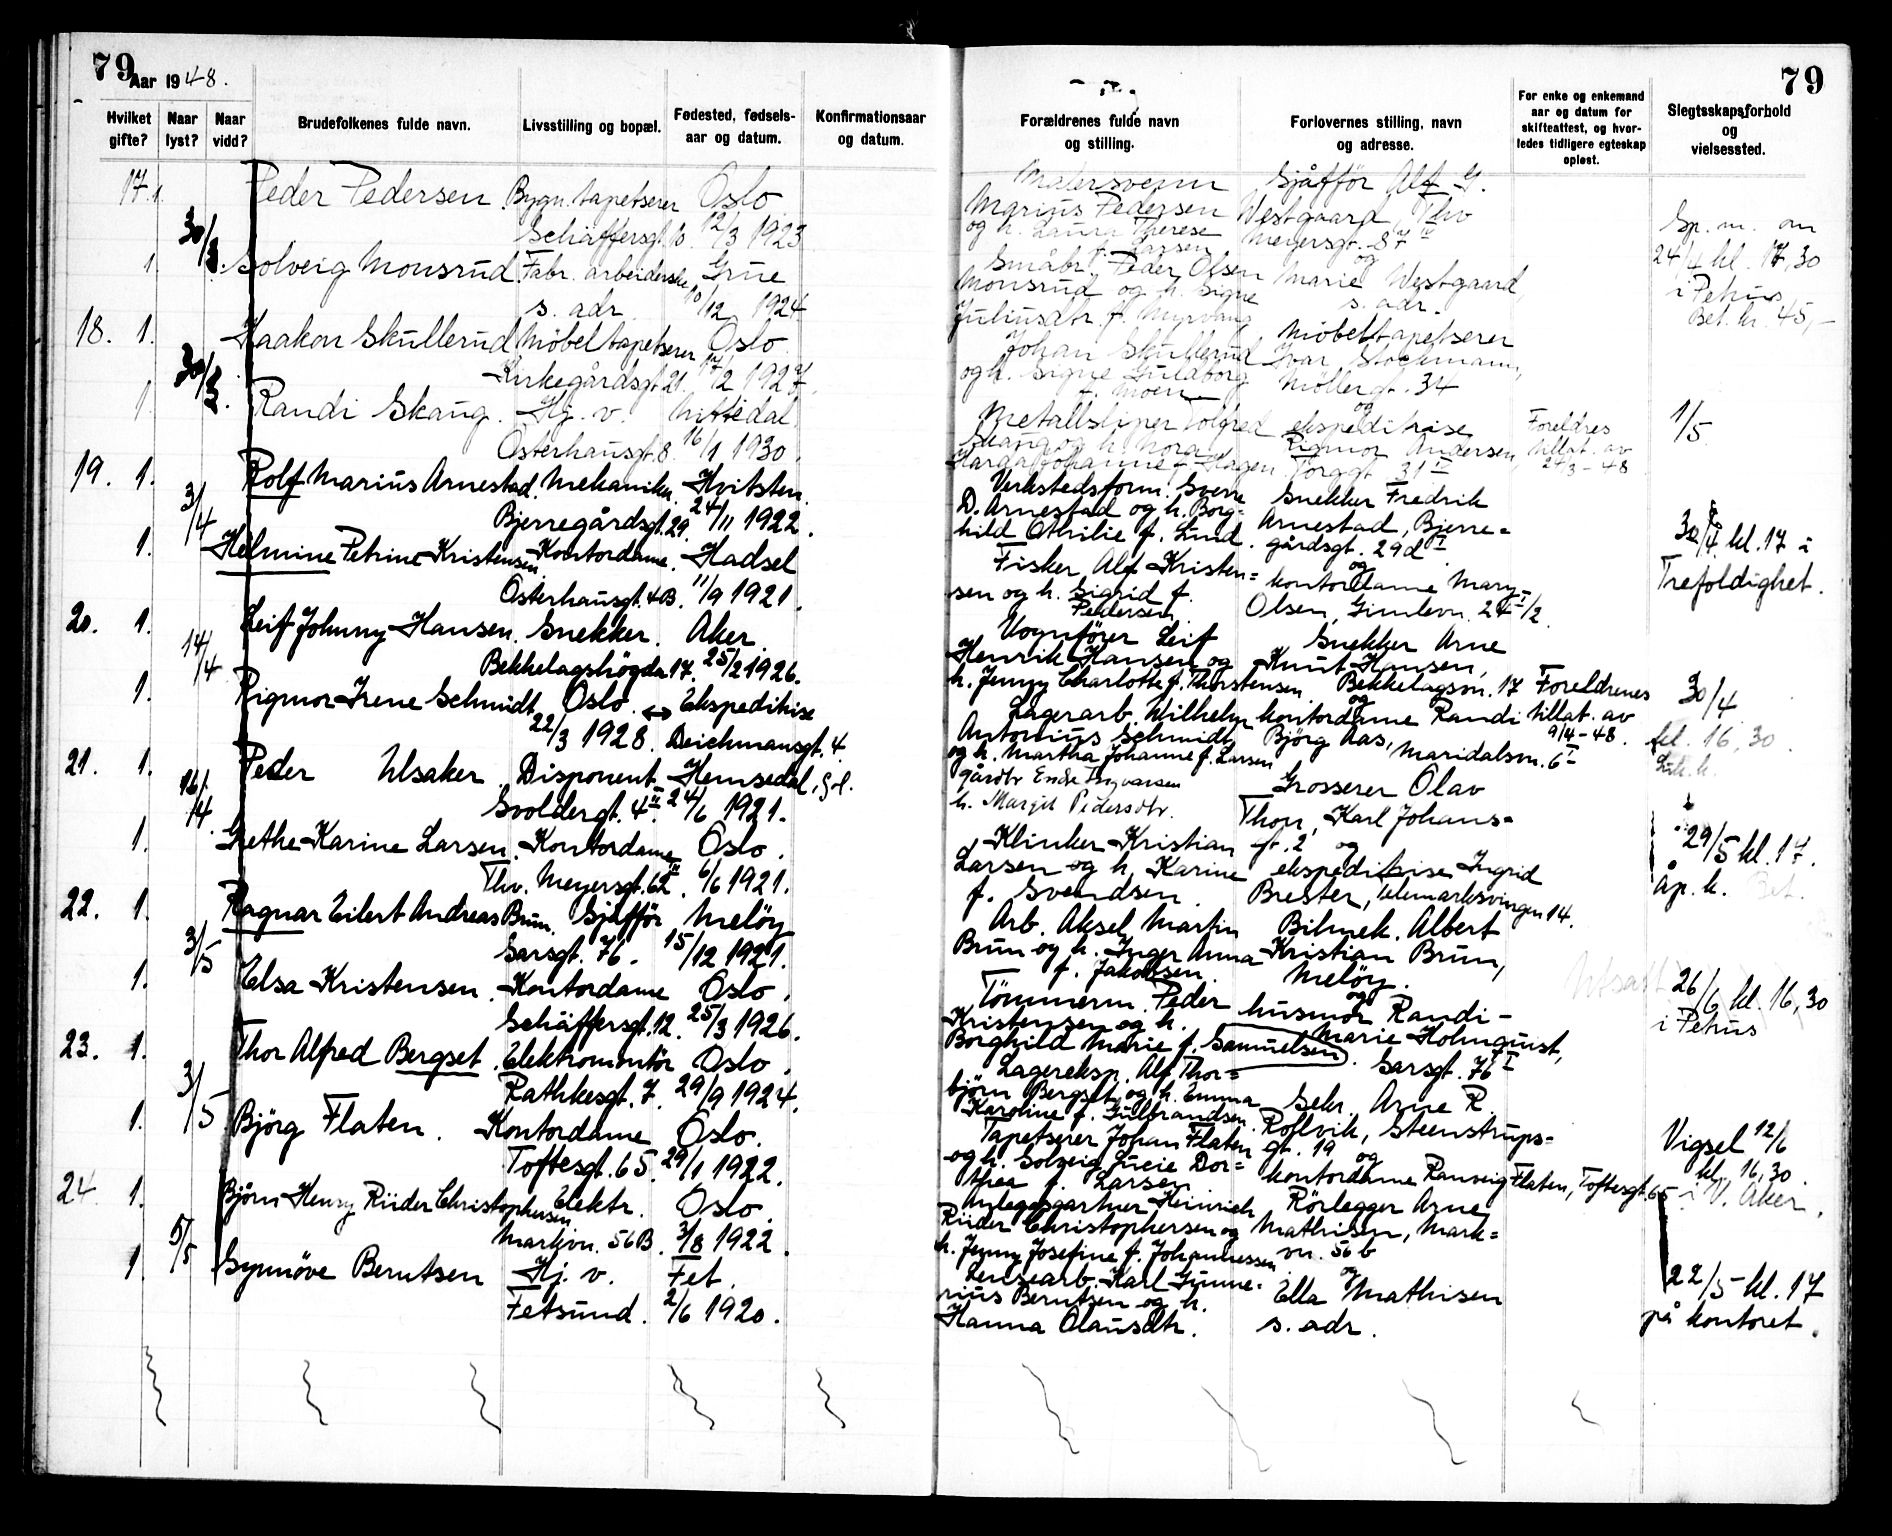 79
Aar 1948.
Hvilket gifte?
Naar lyst?
Naar vidd?
Brudefolkenes fulde navn.
Livsstilling og bopæl.
Fødested, fødsels-
aar og datum.
Konfirmationsaar
og datum.
17. 1. Peder Pedersen Bygn. tapetserer Oslo
30/3 Schäffersgt. 10. 12/3 1923
1. Solveig Monsrud Fabr. arbeiderske Grue
s. adr. 10/12 1924
18. 1. Haakon Skullerud Möbeltapetserer Oslo
30/3. Kirkegårdsgt. 21. 17/2 1927.
1. Randi Skaug. Hj. v. Nittedal
Osterhausgt. 8. 16/1 1930.
19. 1. Rolf Marius Arnestad. Mekaniker. Hvitsten.
3/4 Bjerregårdsgt. 29. 24/11 1922.
1. Helmine Petrine Kristensen. Kontordame. Hadsel
Osterhausgt. 4B. 11/9 1921.
20. 1. Leif Johnny Hansen. Snekker. Aker.
14/4 Bekkelagshögda 17. 25/2 1926.
1. Rigmor Irene Schmidt Oslo. ↔ Ekspeditrise
22/3 1928. Deichmansgt. 4.
21. 1. Peder Ulsaker. Disponent. Hemsedal,
16/4. Svoldergt. 4 II. 24/6 1921.
1. Grethe Karine Larsen. Kontordame Oslo.
Thv. Meyersgt. 62 II. 6/6 1921.
22. 1. Ragnar Eilert Andreas Brun. Sjåfför Melöy
3/5 Sarsgt. 76. 15/12 1921.
1. Elsa Kristensen. Kontordame Oslo.
Schäffersgt. 12. 25/3 1926.
23. 1. Thor Alfred Bergset. Elektromontör Oslo.
3/5 Rathkesgt. 7. 29/9 1924.
1. Björg Flaten. Kontordame Oslo.
Toftesgt. 65. 29/1 1922.
24. 1. Björn Henry Riider Christophersen Elektr. Oslo.
5/5 Markvn. 56B. 3/8 1922.
1. Synnöve Berntsen Hj. v. Fet.
Fetsund. 2/6 1920.
79
Forældrenes fulde navn
og stilling.
Forlovernes stilling, navn
og adresse.
For enke og enkemand
aar og datum for
skifteattest, og hvor-
ledes tidligere egteskap
opløst.
Slegtsskapsforhold
og
vielsessted.
Malersvenn
Marius Pedersen
og h. Laura Therese
f. Larsen
Sjåfför Alf G.
Westgaard, Thv
Meyersgt. 87 IV
og
Marie Westgaard,
s. adr.
24/4 kl. 17,30
i Petrus
Bet. kr. 45,-
Småbr. Peder Olsen
Monsrud og h. Signe
Juliusdtr. f. Myrvang
Johan Skullerud
og h. Signe Guldborg
f. Moen
Möbeltapetserer
Ivar Stockmann,
Möllergt. 34
og
ekspeditrise
Rigmor Andersen,
Torggt. 31 IV
Foreldres
tillat. av
24/3-48
1/5
Metallsliper
Skaug og h. Nora
Johanne f. Hagen
Verkstedsform. Sverre
D. Arnestad og h. Borg-
hild Othilie f. Lund.
Snekker Fredrik
Arnestad, Bjerre=
gårdsgt. 29d I.
og
kontordame Mary
Olsen, Gimlevn. 24 I/2.
30/4. kl. 17 i
Trefoldighet.
Fisker Alf Kristen=
sen og h. Sigrid f.
Pedersen
Vognförer Leif
Henrik Hansen og
h. Jenny Charlotte f. Thorstensen
Snekker Arne
Knut Hansen,
Bekkelagsvn. 17
og
kontordame Randi
Björg Aas,
Maridalsvn. 6 I
Foreldrenes
tillat. av
9/4-48.
30/4
kl. 16,30.
Lagerarb. Wilhelm
Antonius Schmidt
og h. Martha Johanne f. Larsen
gårdbr Endre Ingvarsen
h. Margit Pedersdtr.
Grosserer Olav
Thon, Karl Johans=
gt. 2 og
ekspeditrise Ingrid
Brester, Telemarksvingen 14.
29/5 kl. 17.
Åp. k. Bet.
Klinker Kristian
Larsen og h. Karine
f. Svendsen.
Arb. Aksel Martin
Brun og h. Inger Anna
f. Jakobsen.
Bilmek. Albert
Kristian Brun,
Melöy.
og
husmor Randi-
Marie Holmquist,
Sarsgt. 76 I
Utsatt
26/6 kl. 16,30
i Petrus
Tömmerm. Peder
Kristensen og h.
Borghild Marie f. Samuelsen.
Lagereksp. Alf Thor=
björn Bergset og h. Emma
Karoline f. Gulbrandsen.
Sekr. Arne R.
Roflvik, Steenstrups=
gt. 19 og
kontordame Ranveig Flaten, Toftesgt. 65
Vigsel 12/6
kl. 16,30.
i V. Aker.
Tapetserer Johan Flaten
og h. Solveig Lucie Dor=
thea f. Larsen
Anlegsgartner Heinrich
Riider Christophersen og
h. Jenny Josefine f. Johannessen
Rörlegger Arne
Mathisen, Mark=
vn. 56 b
og
Ella Mathisen
s. adr.
22/5 kl. 17
på kontoret.
Lensearb. Karl Gunne-
rius Berntsen og h.
Hanna Olausdtr.